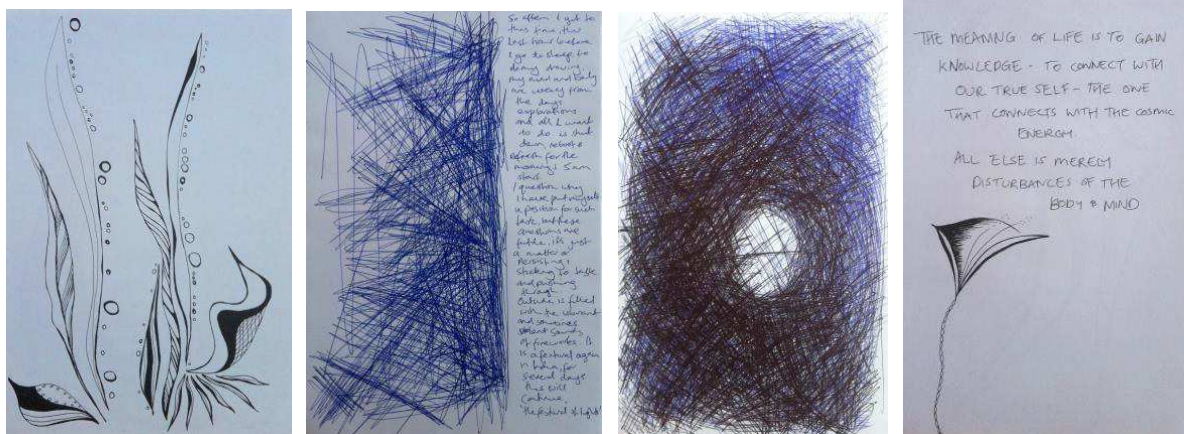 So often I get to
this time, the
last hour before
I go to sleep, to
do my drawing.
my mind and body
are weary from
the days
explorations
and all I want
to do is shut
down, reboot &
refresh for the
morning's 5am
start.
I question why
I have put myself
in position for such
task, but these
questions are
futile, it's just
a matter of
Persisting,
sticking to
and pushing
through
Outside is filled
with the vibrant
and sometimes
violent sounds
of fireworks. It
is a festival again
in India, for
several days
this will
continue,
'the festival of lights'
THE MEANING OF LIFE IS TO GAIN
KNOWLEDGE - TO CONNECT WITH
OUR TRUE SELF - THE ONE
THAT CONNECTS WITH THE COSMIC
ENERGY.
ALL ELSE IS MERELY
DISTURBANCES OF THE
BODY & MIND